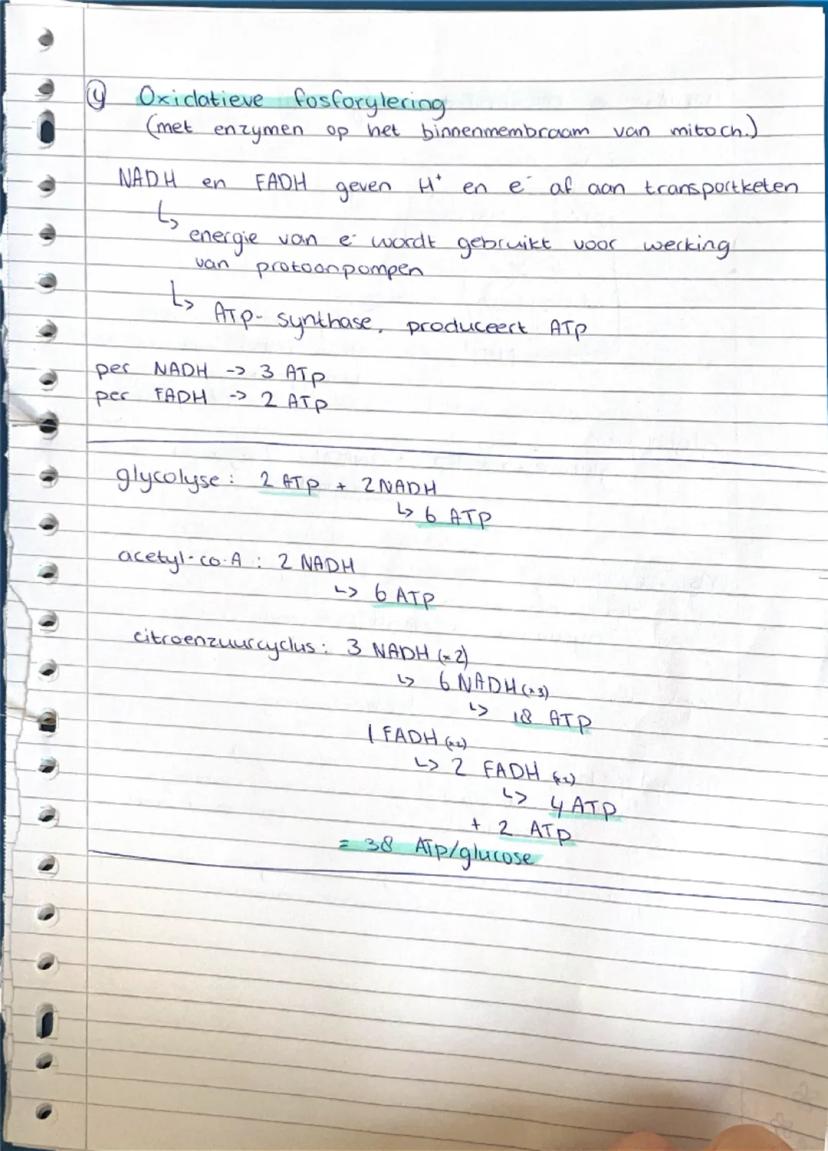 ④ Oxidatieve fosforylering
(met enzymen op het binnenmembraam van mitoch.)
NADH en FADH geven H⁺ en e⁻ af aan transportketen
↳ energie van e⁻ wordt gebruikt voor werking
van protoonpompen
↳ ATP-synthase, produceert ATP
per NADH -> 3 ATP
per FADH -> 2 ATP
glycolyse: 2 ATP + 2NADH
↳ 6 ATP
acetyl-co-A: 2 NADH
↳ 6 ATP
citroenzuurcyclus: 3 NADH (×2)
↳ 6 NADH (×3)
↳ 18 ATP
1 FADH (×2)
↳ 2 FADH (×2)
↳ 4 ATP
+ 2 ATP
= 38 ATP/glucose